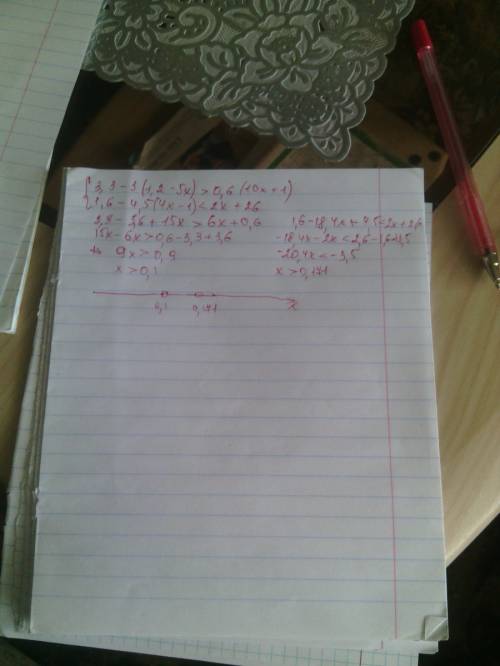 { 3,3 - 3(1,2 - 5x) > 0,6(10x + 1)
1,6 - 4,5(4x - 1) < 2x + 26
3,3 - 3,6 + 15x > 6x + 0,6
15x - 6x > 0,6 - 3,3 + 3,6
9x > 0,9
x > 0,1
1,6 - 18,4x + 4,5 < 2x + 2,6
-18,4x - 2x < 2,6 - 1,6 - 4,5
-20,4x < -3,5
x > 0,171
0,1 0,171 x